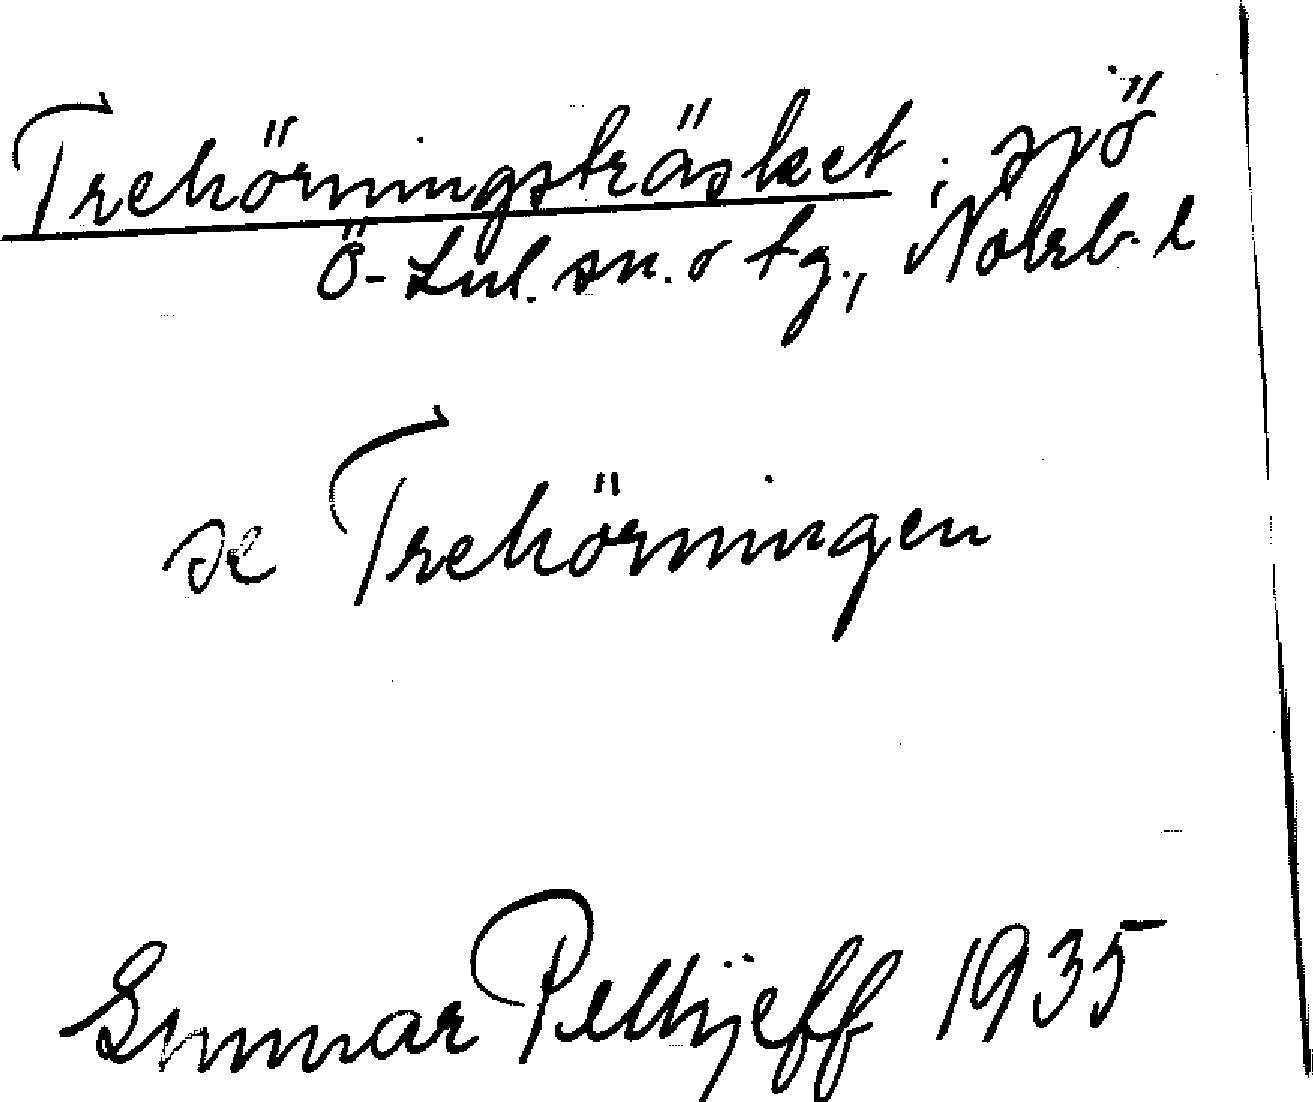 Trehörningsträsket, sjö
Ö-Lul. sn. o tg., Norrb. l
se Trehörningen
Gunnar Pellijeff 1935